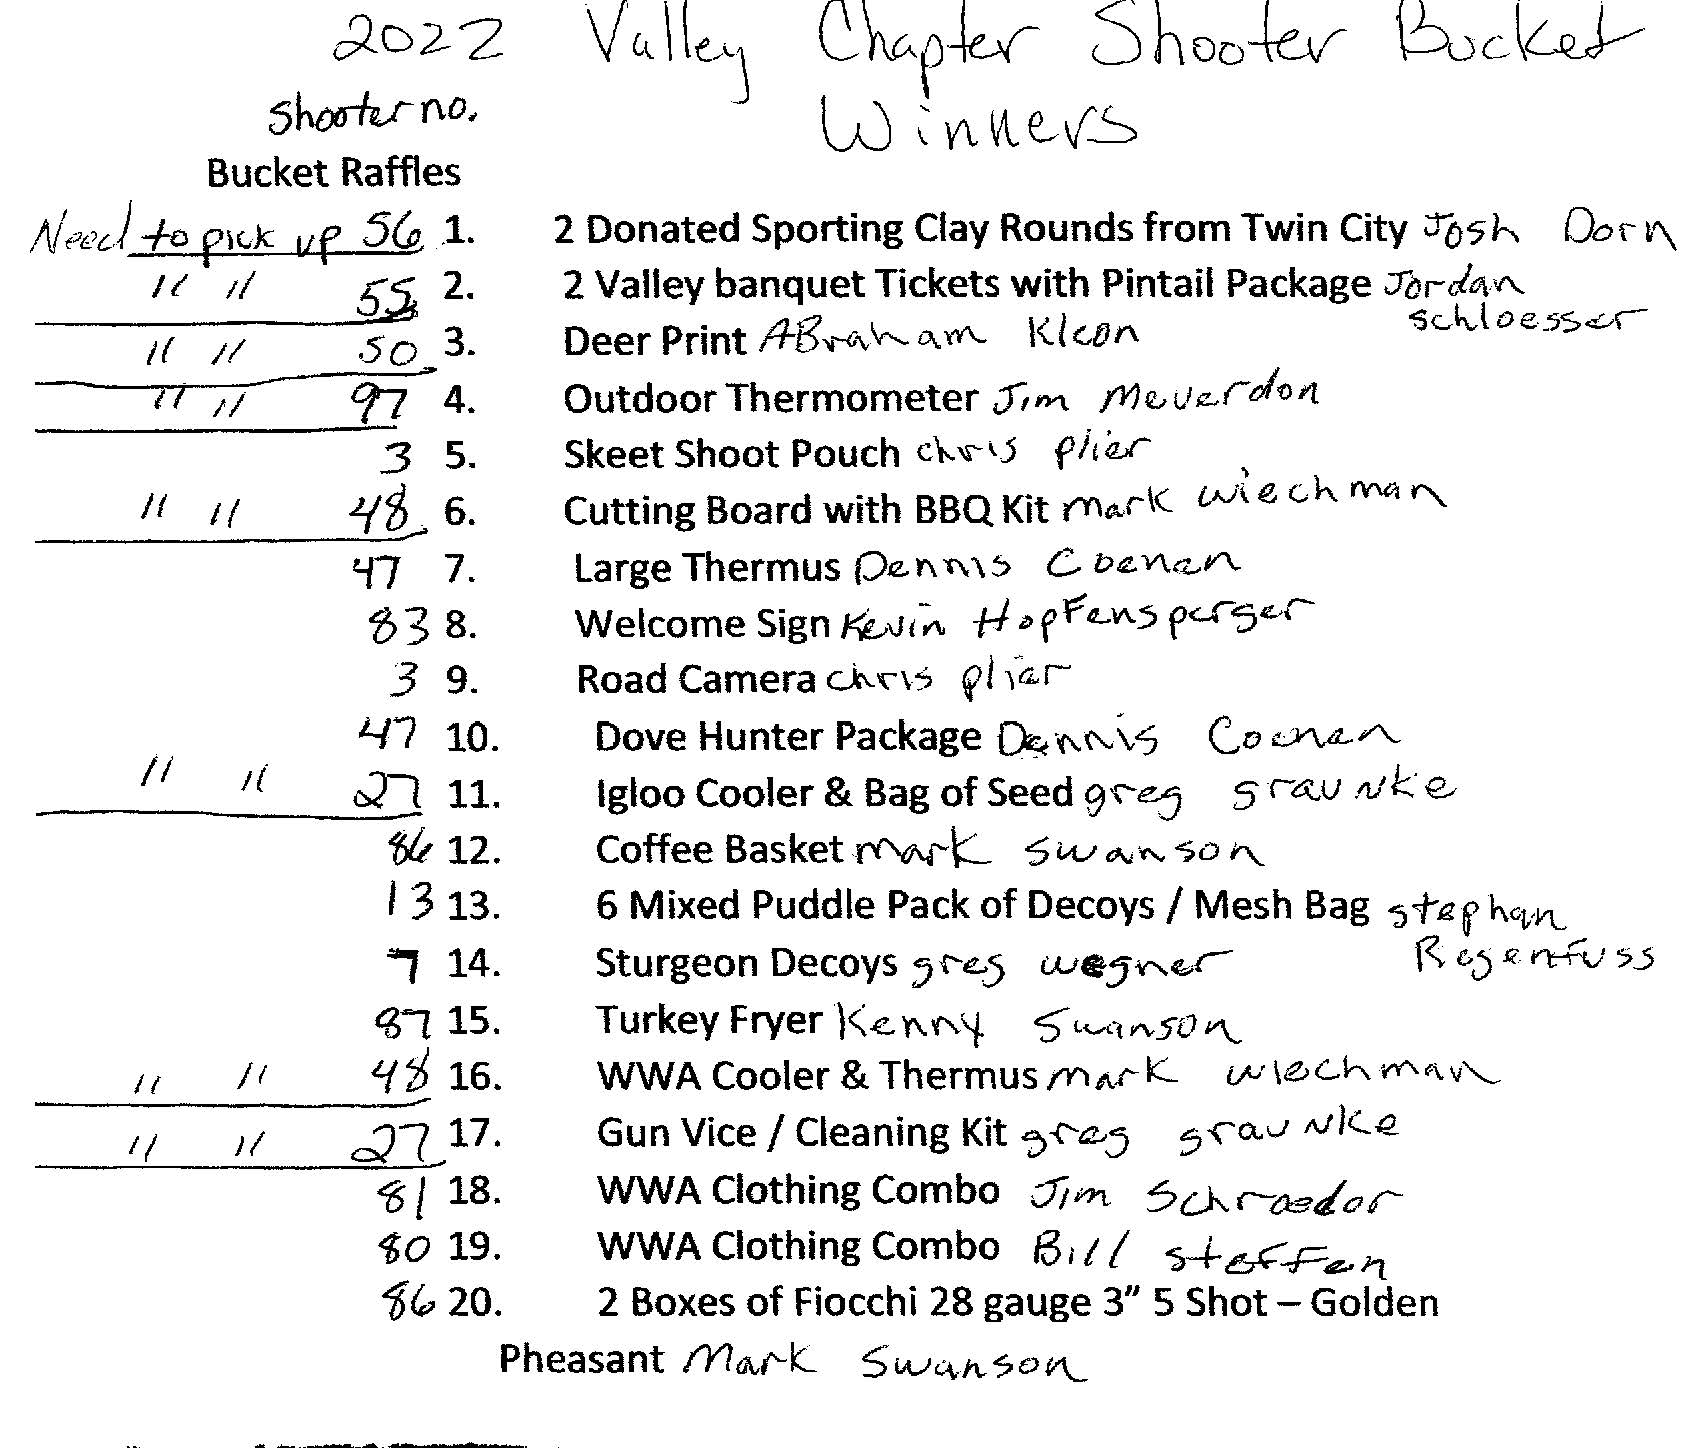 2022 Valley Chapter Shooter Bucket
Shooter no. Winners
Bucket Raffles
Need to pick up 56 1. 2 Donated Sporting Clay Rounds from Twin City Josh Dorn
" " 55 2. 2 Valley banquet Tickets with Pintail Package Jordan
schloesser
" " 50 3. Deer Print ABraham Kleon
" " 97 4. Outdoor Thermometer Jim Meuerdon
3 5. Skeet Shoot Pouch chris plier
" " 48 6. Cutting Board with BBQ Kit mark wiechman
47 7. Large Thermus Dennis Coenen
83 8. Welcome Sign Kevin HopFensperger
3 9. Road Camera chris plier
47 10. Dove Hunter Package Dennis Coenen
" " 27 11. Igloo Cooler & Bag of Seed greg graunke
86 12. Coffee Basket mark swanson
13 13. 6 Mixed Puddle Pack of Decoys / Mesh Bag stephan
Regenfuss
7 14. Sturgeon Decoys greg wegner
87 15. Turkey Fryer Kenny Swanson
" " 48 16. WWA Cooler & Thermus mark wiechman
" " 27 17. Gun Vice / Cleaning Kit greg graunke
81 18. WWA Clothing Combo Jim Schroedor
80 19. WWA Clothing Combo Bill steffen
86 20. 2 Boxes of Fiocchi 28 gauge 3” 5 Shot – Golden
Pheasant Mark Swanson